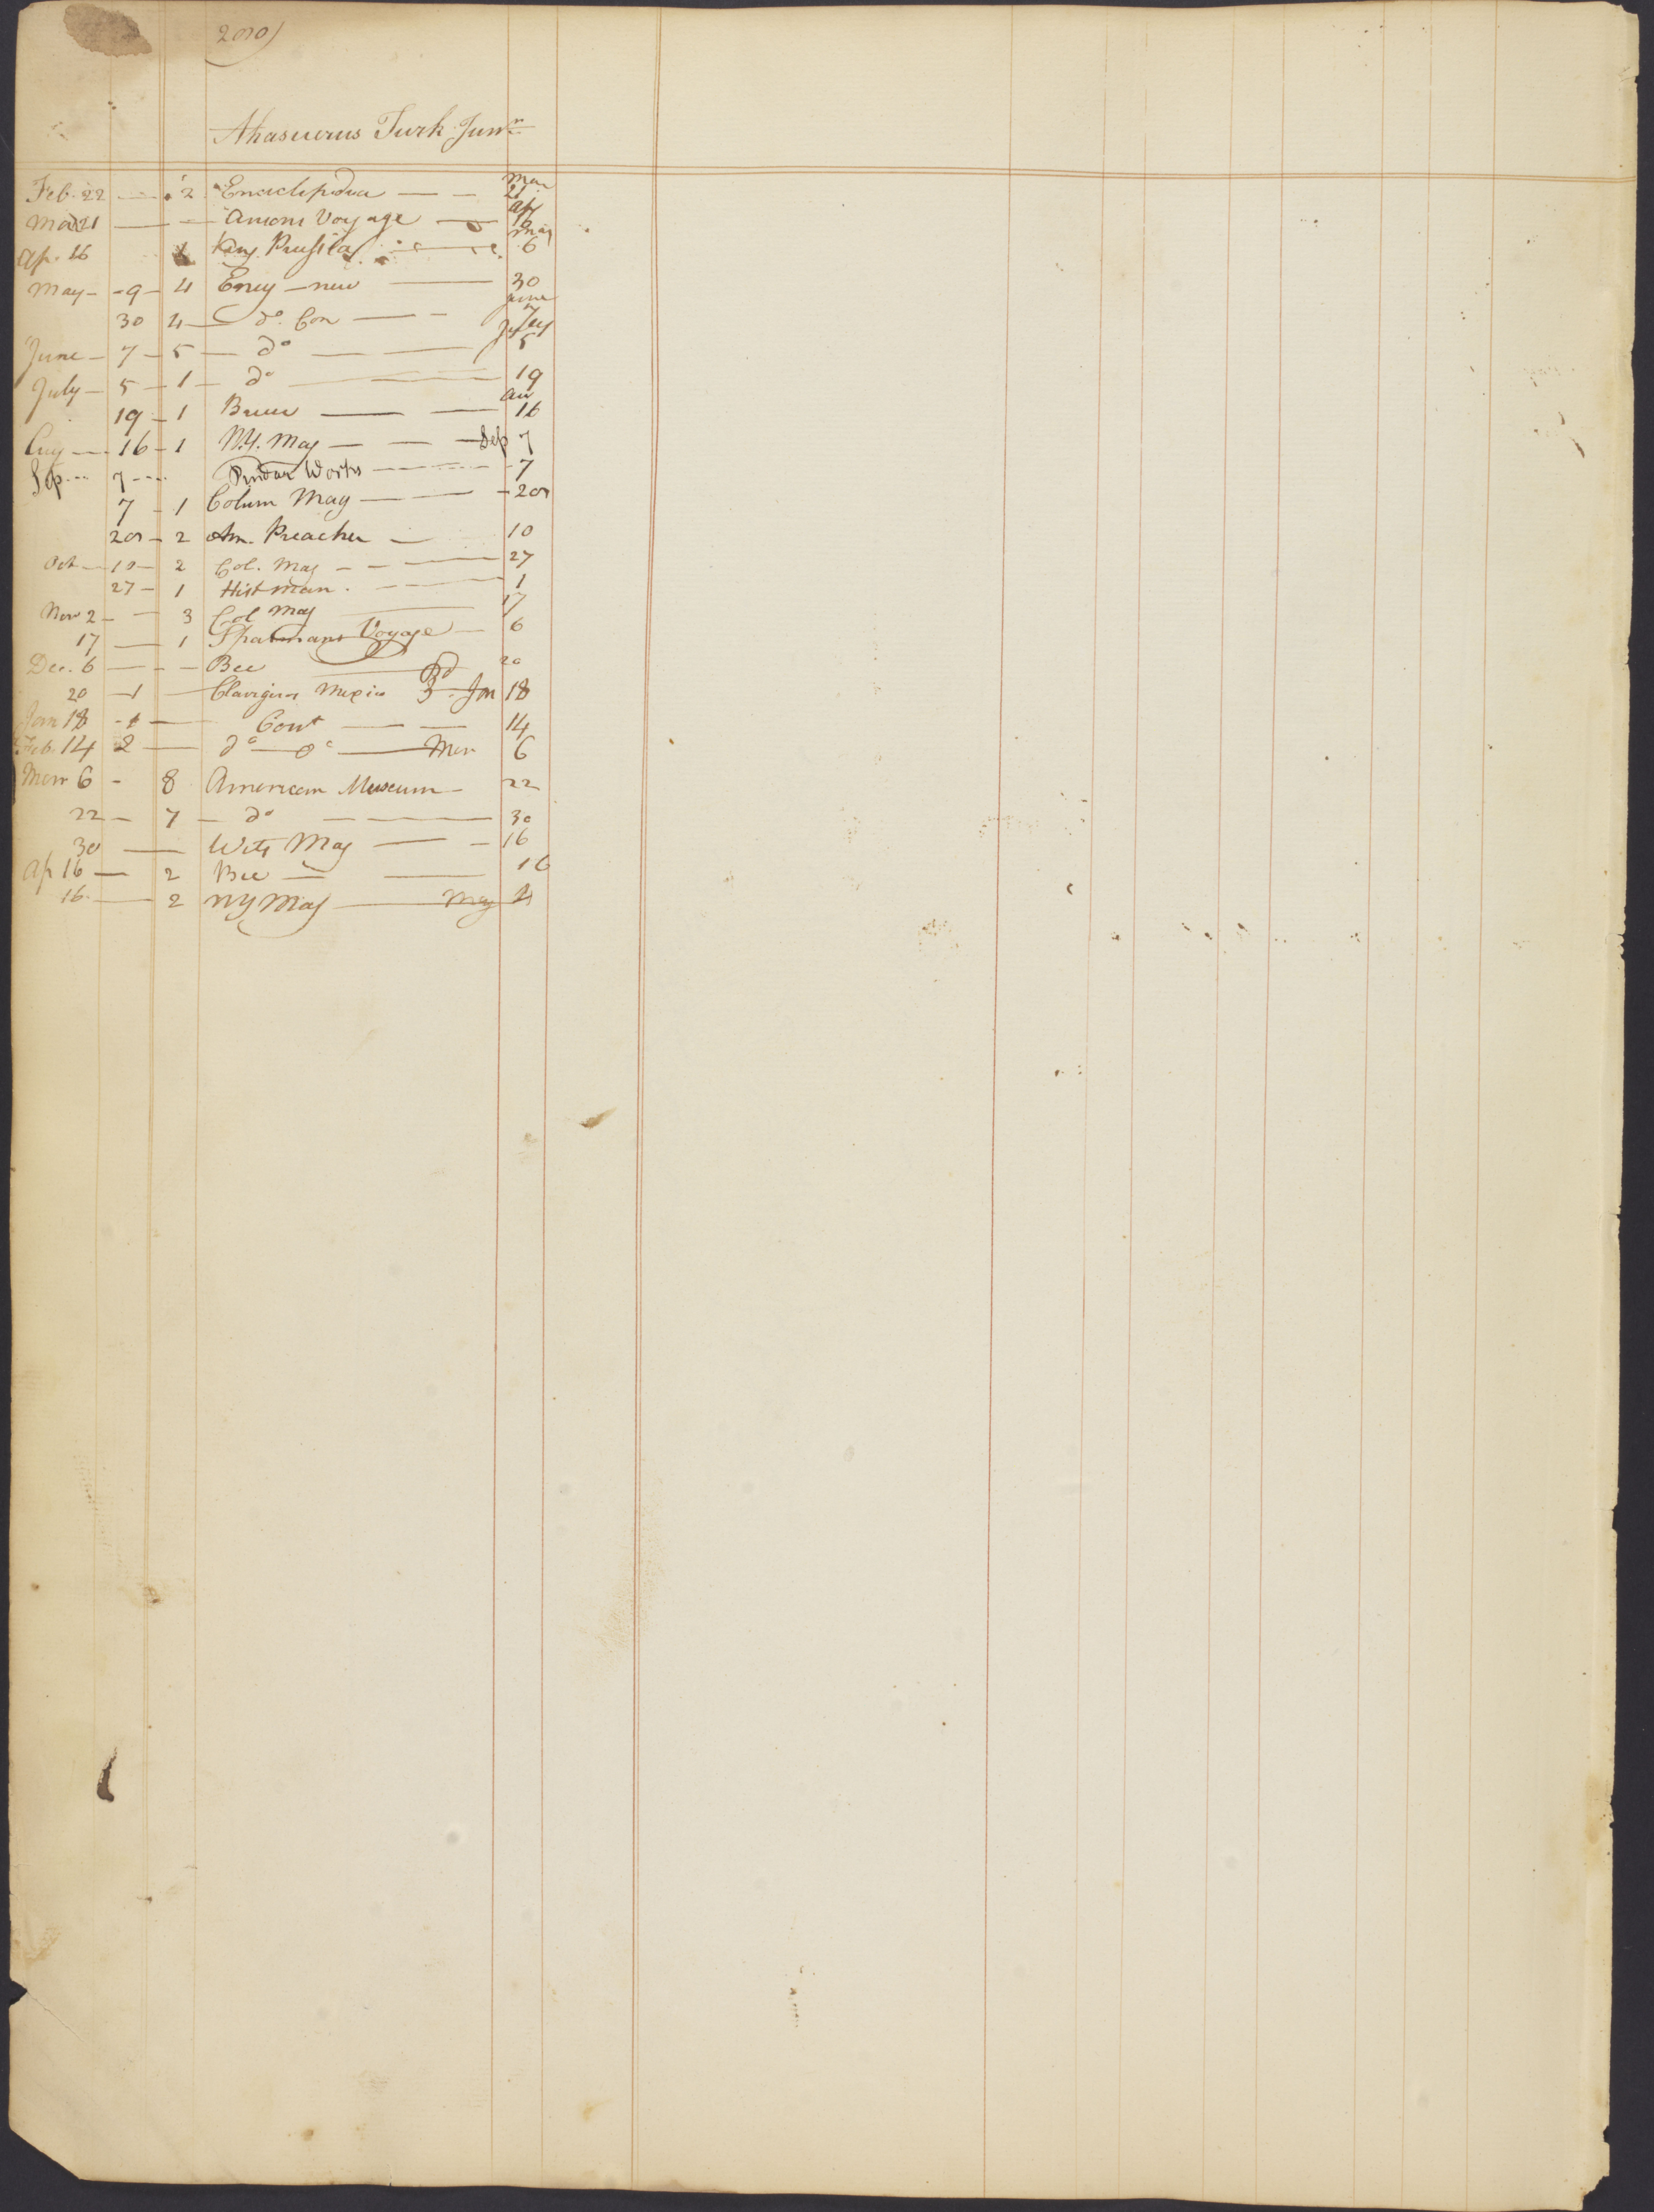 200)
Ahasuerus Turk Junr
Feb. 22 — 2 Enciclipedia — — Mar 21
Mar 21 — — Ansons Voyage — Ap 16
Ap. 16 1 King Prussia — May 6
May — 9 — 4 Ency — new — 30
30 4 — do. Con — — June 7
June — 7 — 5 — do — — July 5
July — 5 — 1 — do — 19
19 — 1 Bruce — — Au 16
Aug — 16 — 1 N.Y. Mag — — — Sep 7
Sep — 7 — Pindar Works — 7
7 — 1 Colum Mag — — 20
20 — 2 Am. Preacher — 10
Oct — 10 — 2 Col. Mag — — — 27
27 — 1 Hist Man. — — 1
Nov 2 — — 3 Col Mag — 17
17 — 1 Sparmans Voyage — 6
Dec. 6 — — — Bee — 20
20 — 1 — Clavigero Mexico 3 — Jan 18
Jan 18 — 1 — Cont — — 14
Feb. 14 2 — do — do — Mar 6
Mar 6 — 8 American Museum — 22
22 — 7 — do — — — 30
30 — Wits Mag — — 16
Ap 16 — 2 Bee — — 16
16 — 2 NY Mag — May 4